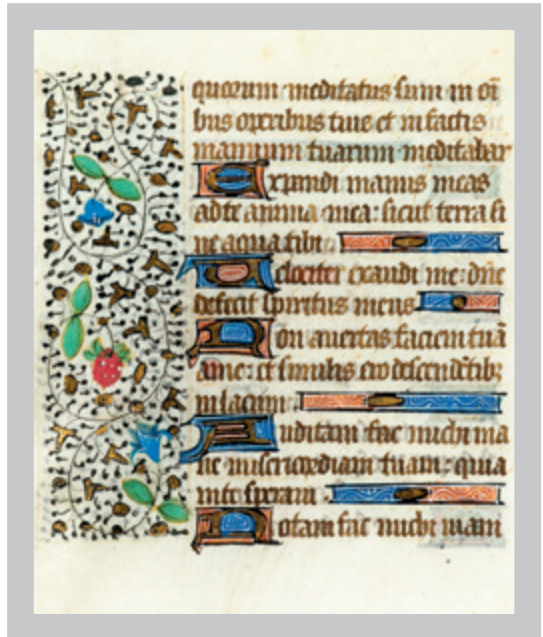 quorum meditatus sum in oī
bus operibus tuis et in factis
manuum tuarum meditabar
Expandi manus meas
ad te anima mea: sicut terra si
ne aqua tibi
Velociter exaudi me: dñe
defecit spiritus meus
Non auertas faciem tuā
a me: et similis ero descendētibꝫ
in lacum
Auditam fac michi ma
ne misericordiam tuam: quia
in te speraui
Notam fac michi uiam